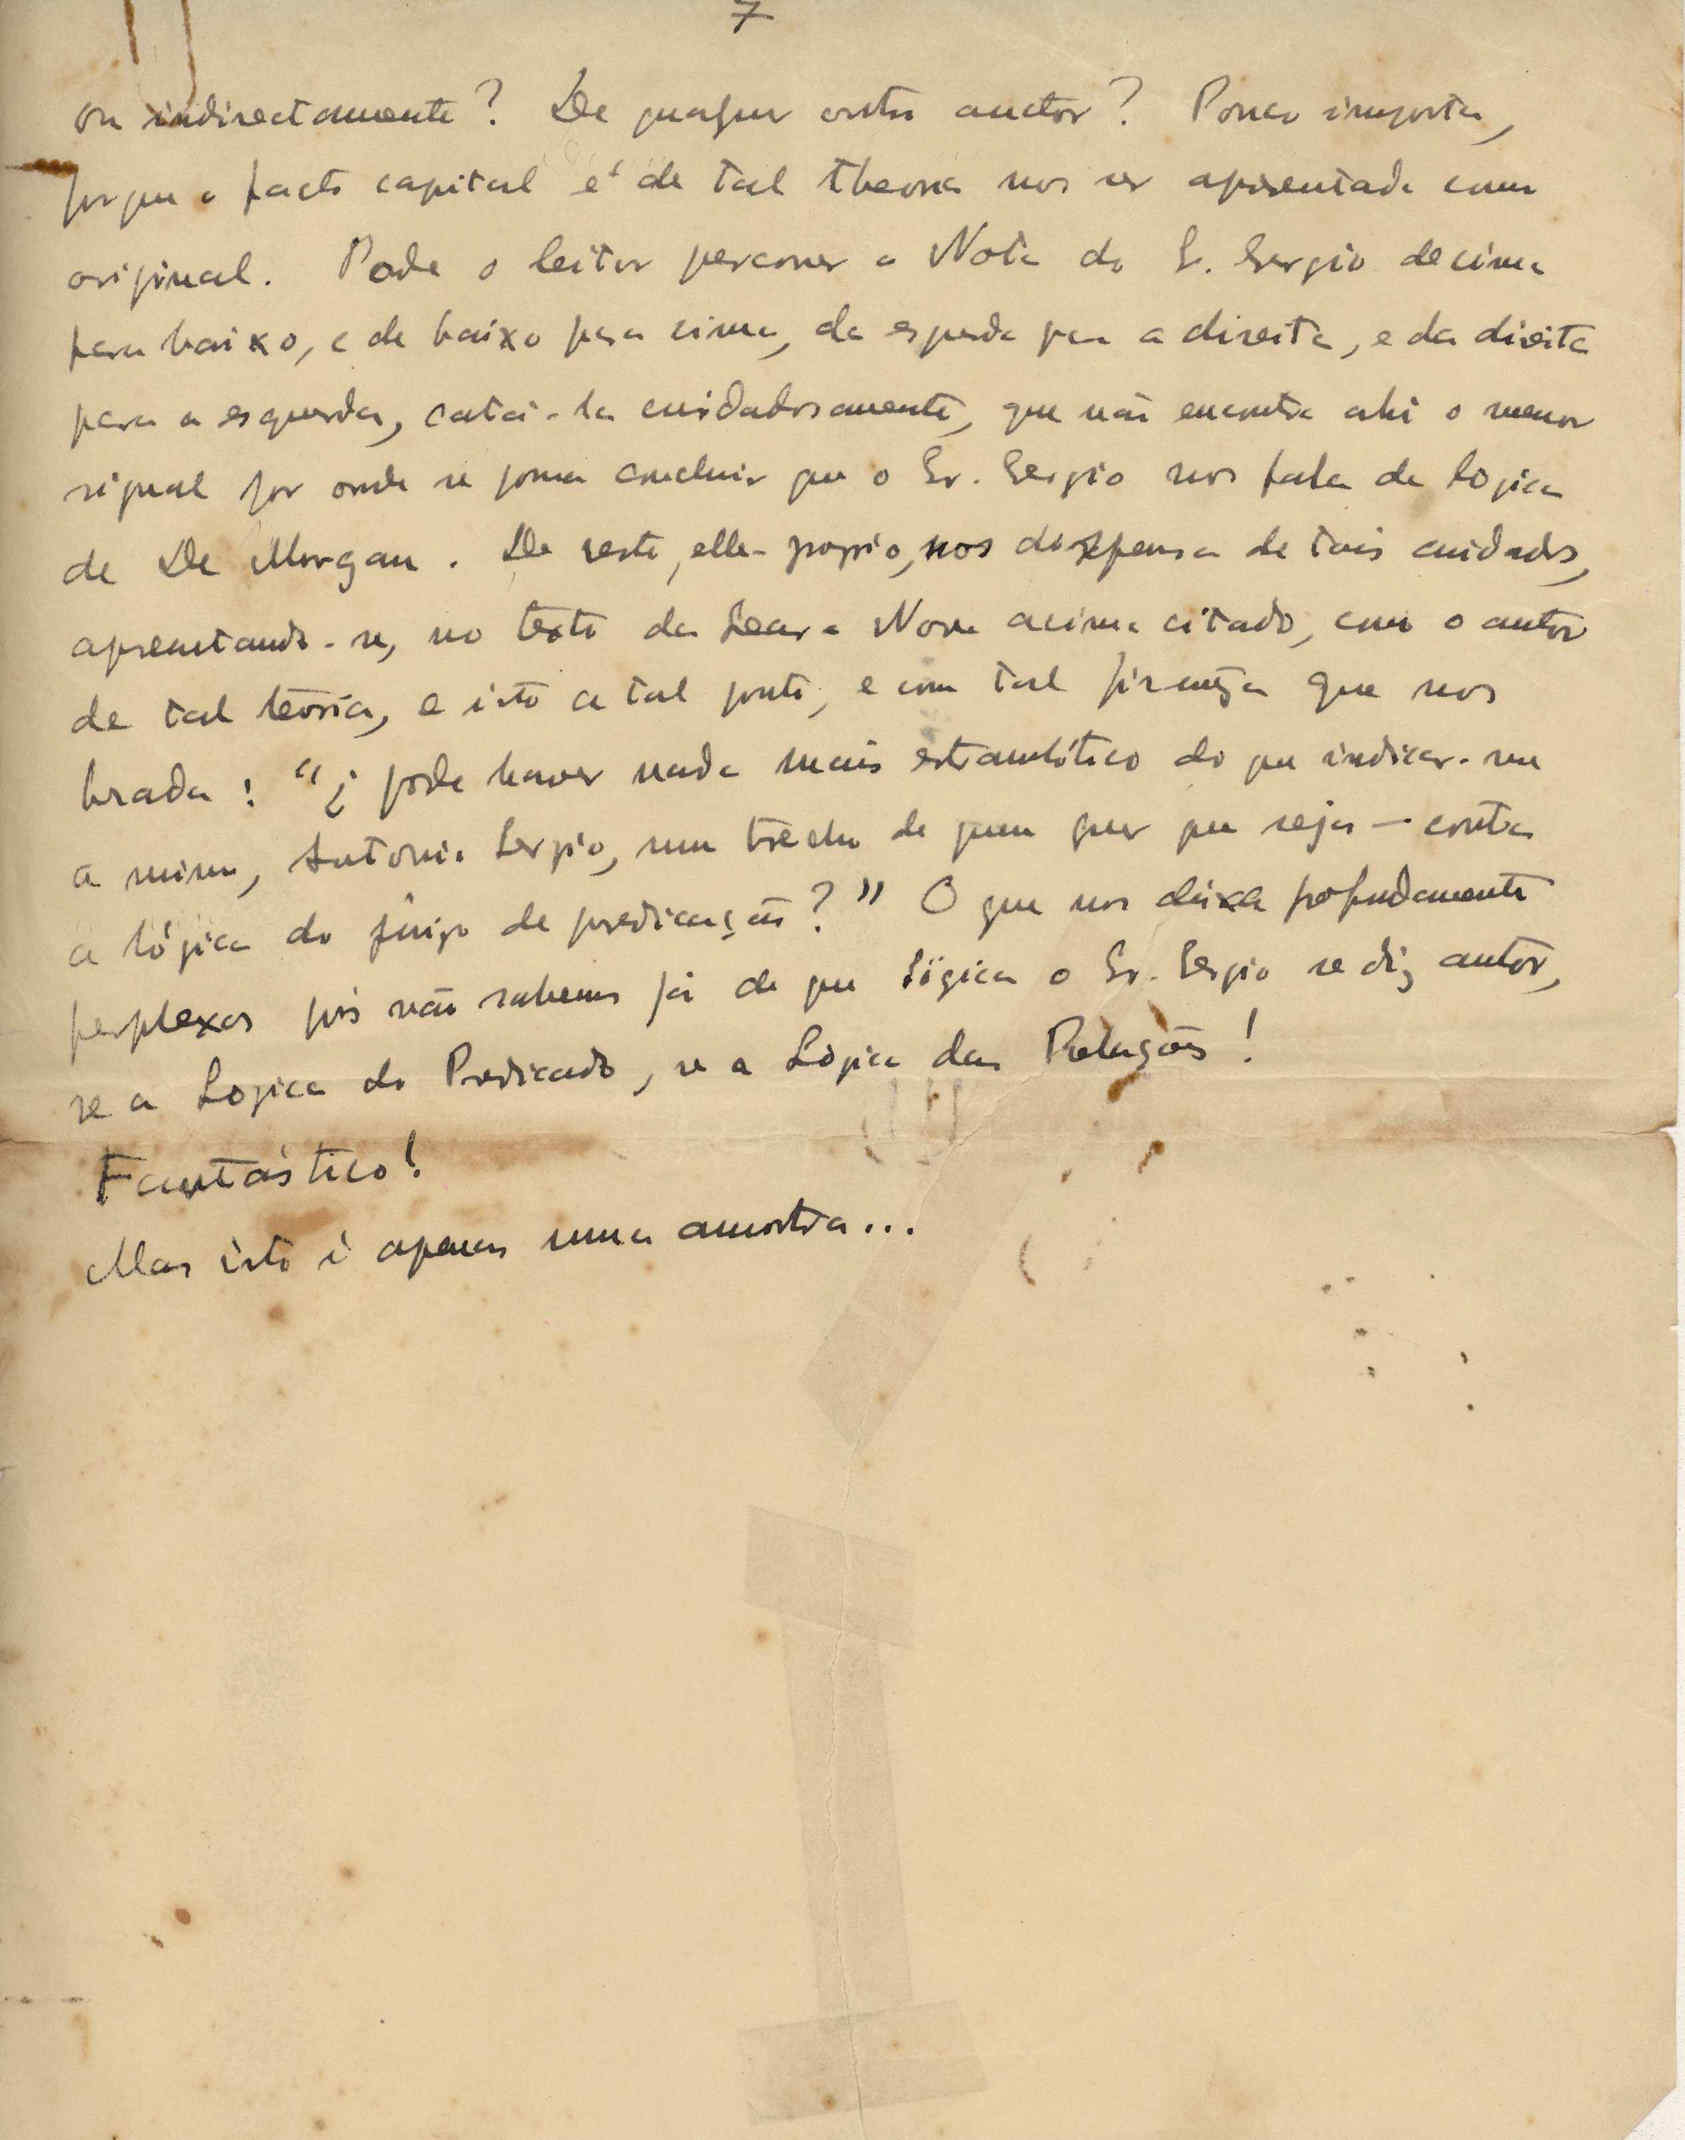 7
ou indirectamente? De qualquer outro auctor? Pouco importa,
porque o facto capital é de tal theoria nos ser apresentada como
original. Pode o leitor percorrer a Nota do Sr. Sergio de cima
para baixo, e de baixo para cima, da esquerda para a direita, e da direita
para a esquerda, catá-la cuidadosamente, que não encontra ahi o menor
signal por onde se possa concluir que o Sr. Sergio nos fala da Lógica
de De Morgan. De resto, elle-proprio, nos dispensa de tais cuidados,
apresentando-se, no texto da Seara Nova acima citado, com o autor
de tal teoria, e isto a tal ponto, e com tal firmeza que nos
brada: "¿pode haver nada mais estrambótico do que indicar-me
a mim, Antonio Sergio, um trecho de quem quer que seja — contra
a lógica do juizo de predicação?" O que nos deixa profundamente
perplexos pois não sabemos já de que lógica o Sr. Sergio se diz autor,
se a Logica do Predicado, se a Lógica das Relações!
Fantástico!
Mas isto é apenas uma amostra...